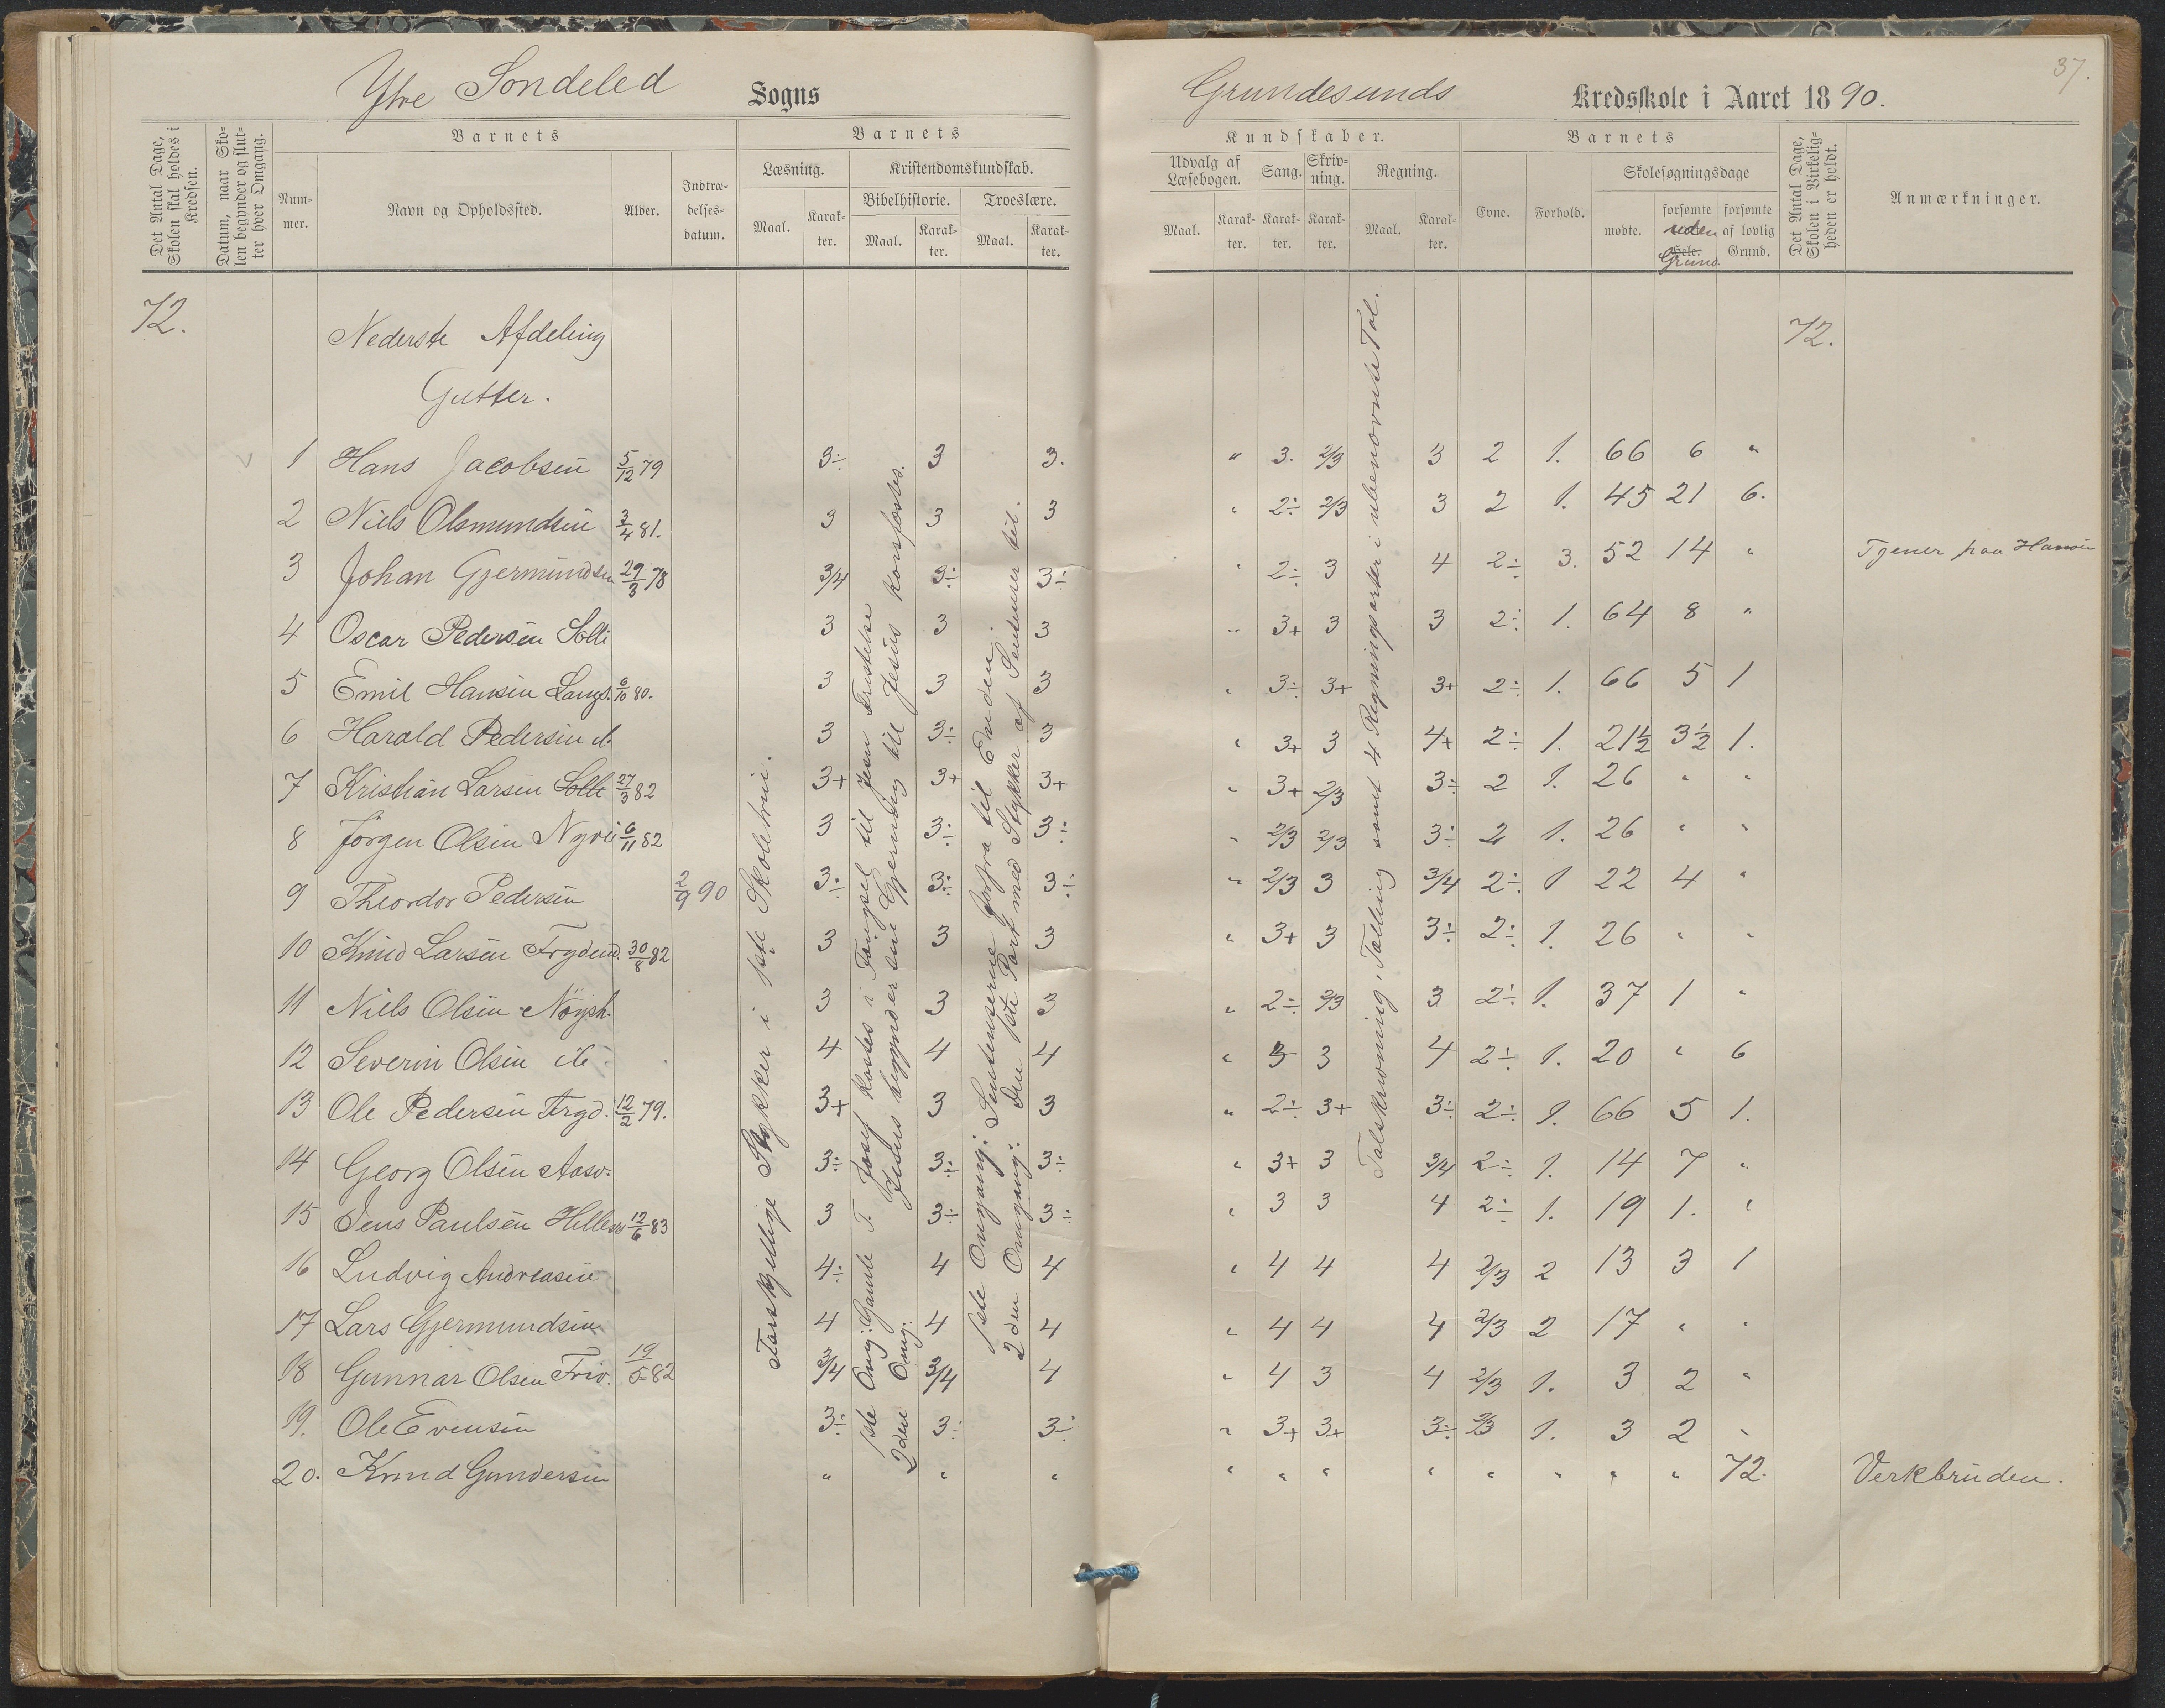 Ytre Söndeled Sogns
Grundesunds Kredsskole i Aaret 1890.
37.
Det Antal Dage, Skolen skal holdes i Kredsen.
Datum, naar Skolen begynder og slutter hver Omgang.
Barnets
Nummer.
Navn og Opholdssted.
Alder.
Indtrædelsesdatum.
Barnets
Læsning.
Maal.
Karakter.
Kristendomskundskab.
Bibelhistorie.
Maal.
Karakter.
Troeslære.
Maal.
Karakter.
Kundskaber.
Udvalg af Læsebogen.
Maal.
Karakter.
Sang.
Karakter.
Skrivning.
Karakter.
Regning.
Maal.
Karakter.
Barnets
Evne.
Forhold.
Skolesøgningsdage
mødte.
forsømte uden Grund.
forsømte af lovlig Grund.
Det Antal Dage, Skolen i Virkeligheden er holdt.
Anmærkninger.
72. Nederste Afdeling 72.
Gutter.
1 Hans Jacobsen 5/12 79 3÷ 3 3. " 3. 2/3 3 2 1. 66 6 "
2 Niels Olsmundsen 3/4 81. 3 3 3 " 2÷ 2/3 3 2 1. 45 21 6.
3 Johan Gjermundsen 29/3 78 3/4 3÷ 3÷ " 2÷ 3 4 2÷ 3. 52 14 " Tjener paa Hansen
4 Oscar Pedersen Solli 3 3 3 " 3+ 3 3 2÷ 1. 64 8 "
5 Emil Hansen Langs. 6/10 80. 3 3 3 " 3÷ 3+ 3+ 2÷ 1. 66 5 1
6 Harald Pedersen 3 3÷ 3 " 3+ 3 4+ 2÷ 1. 21½ 3½ 1.
7 Kristian Larsen Solli 27/3 82 3+ 3+ 3+ " 3+ 2/3 3÷ 2 1. 26 " "
8 Jörgen Olsen Nyvei 6/11 82 3 3÷ 3÷ " 2/3 2/3 3÷ 2 1. 26 " "
9 Theordor Pedersen 2/9 90 3÷ 3÷ 3÷ " 2/3 3 3/4 2÷ 1 22 4 "
10 Knud Larsen Frydend. 30/8 82 3 3 3 " 3+ 3 3÷ 2÷ 1. 26 " "
11 Niels Olsen Nöysh. 3 3 3 " 2÷ 2/3 3 2÷ 1. 37 1 "
12 Severin Olsen ib. 4 4 4 " 3 3 4 2÷ 1. 20 " 6
13 Ole Pedersen Fryd. 12/2 79. 3+ 3 3 " 2÷ 3+ 3÷ 2÷ 1. 66 5 1.
14 Georg Olsen Aasv. 3÷ 3÷ 3÷ " 3+ 3 3/4 2÷ 1. 14 7 "
15 Jens Paulsen 12/6 83 3 3÷ 3÷ " 3 3 4 2÷ 1. 19 1. "
16 Ludvig Andreasen 4÷ 4 4 " 4 4 4 2/3 2 13 3 1
17 Lars Gjermundsen 4 4 4 " 4 4 4 2/3 2 17 " "
18 Gunnar Olsen Friv. 19/5 82 3/4 3/4 4 " 4 3 4 2/3 1. 3 2 "
19. Ole Evensen 3÷ 3÷ 3÷ " 3+ 3+ 3÷ 2/3 1. 3 2 "
20. Knud Gundersen " " " " " " " " " " " 72. Verkbruden.
Forskjellige Stykker i 1ste Skoletrin.
1ste Omg: Gamle T. Josef kastes i Fængsel til Jesu Fristelse
2den Omg: Jesus begynder sin Gjerning til Jesus korsfæstes.
1ste Omgang: Sentenserne forfra til Enden.
2den Omgang: Den 1ste Part med Stykker af Sentenser til.
Talskrivning, Tælling samt 4 Regningsarter i ubenævnte Tal.